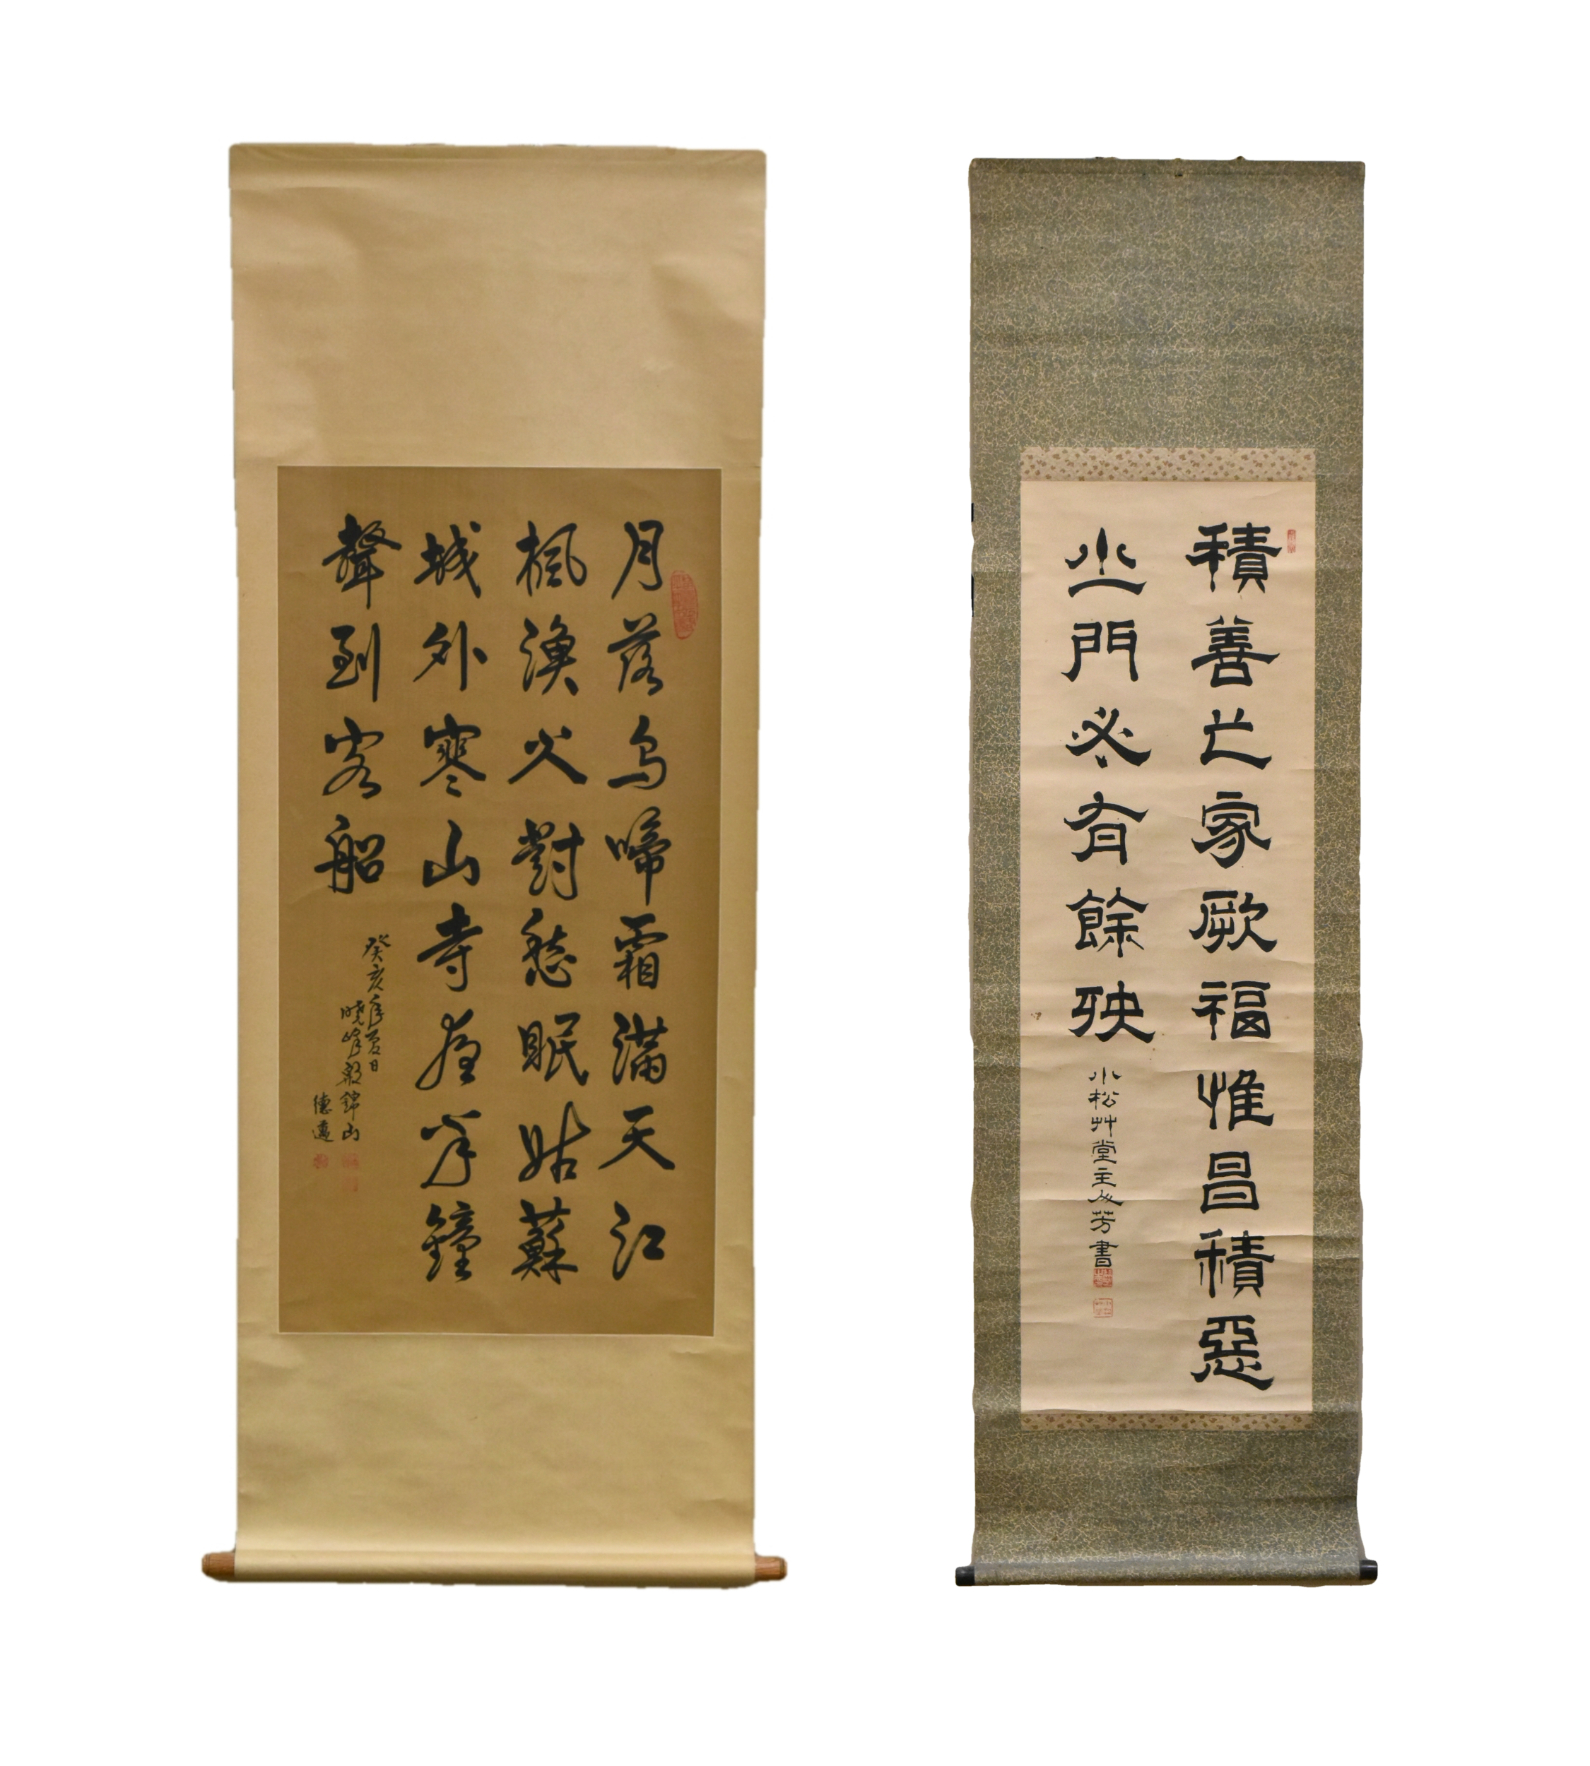 積善之家厥福惟昌積惡
之門必有餘殃
小松艸堂主人芳書
月落烏啼霜滿天江
楓漁火對愁眠姑蘇
城外寒山寺夜半鐘
聲到客船
癸亥年夏日
曉峰殷錦山
德遠